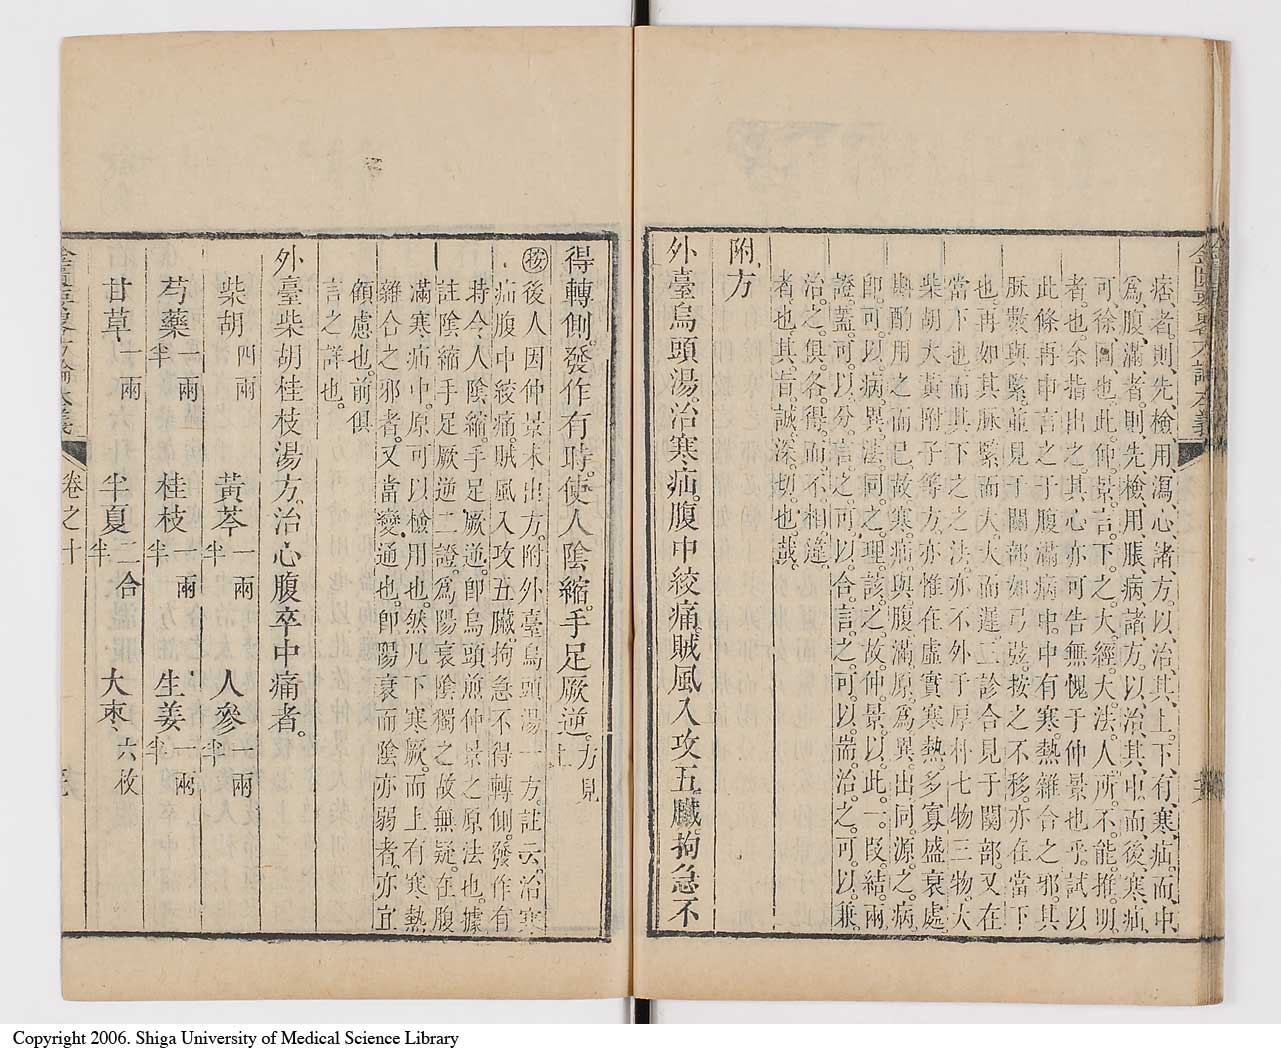 痞者則先檢用瀉心諸方以治其上下有寒疝而中
爲腹滿者則先檢用脹病諸方以治其中而後寒疝
可徐圖也此仲景言下之大經大法人所不能推明
者也余指出之其心亦可告無愧于仲景也乎試以
此條再申言之于腹滿病中中有寒熱雜合之邪其
脉數與緊並見于關部如弓弦按之不移亦在當下
也再如其脉緊而大大而遲二診合見于關部又在
當下也而其下之之法亦不外于厚朴七物三物大
柴胡大黃附子等方亦惟在虛實寒熱多寡盛衰處
斟酌用之而已故寒疝與腹滿原爲異出同源之病
卽可以病異法同之理該之故仲景以此一段結兩
證蓋可以分言之可以合言之可以耑治之可以兼
治之俱各得而不相違
者也其旨誠深切也哉
附方
外臺烏頭湯治寒疝腹中絞痛賊風入攻五臟拘急不
得轉側。發作有時。使人陰縮。手足厥逆。方見上
㊟後人因仲景未出方。附外臺烏頭湯一方。註云。治寒
疝腹中絞痛。賊風入攻五臟。拘急不得轉側。發作有
時。令人陰縮。手足厥逆。卽烏頭煎仲景之原法也。據
註陰縮手足厥逆二證。爲陽衰陰獨之故無疑。在腹
滿寒疝中。原可以檢用也。然凡下寒厥。而上有寒熱
雜合之邪者。又當變通也。卽陽衰而陰亦弱者。亦宜
顧慮也。前俱
言之詳也。
外臺柴胡桂枝湯方。治心腹卒中痛者。
柴胡四兩 黃芩一兩半 人參一兩半
芍藥一兩半 桂枝一兩半 生姜一兩半
甘草一兩 半夏二合半 大棗六枚
卷之十
Copyright 2006. Shiga University of Medical Science Library